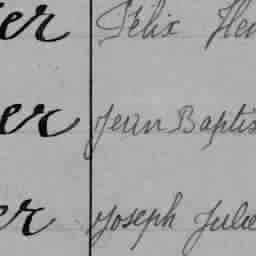 er Félix Hen
er Jean Baptis
er Joseph Julie